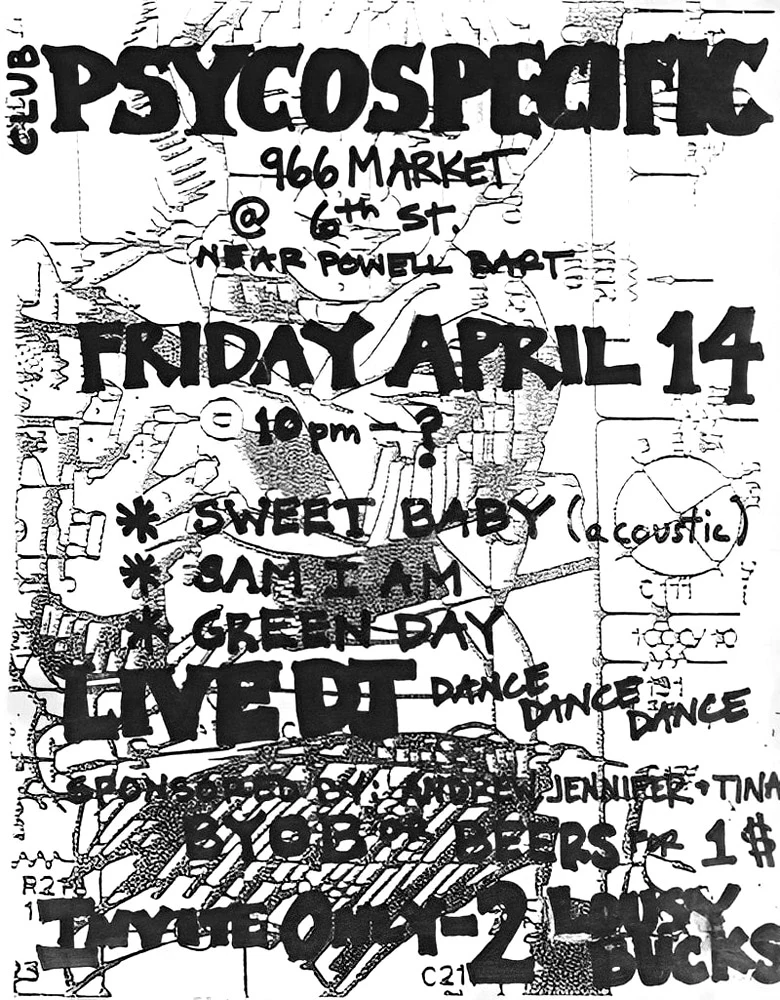 CLUB PSYCOSPECIFIC
966 MARKET
@ 6th ST.
NEAR POWELL BART
FRIDAY APRIL 14
@ 10pm - ?
* SWEET BABY (acoustic)
* SAM I AM
* GREEN DAY
LIVE DJ DANCE DANCE DANCE
SPONSORED BY: ANDREW, JENNIFER + TINA
BYOB OR BEERS FOR 1$
INVITE ONLY - 2 LOUSSY BUCKS
C21